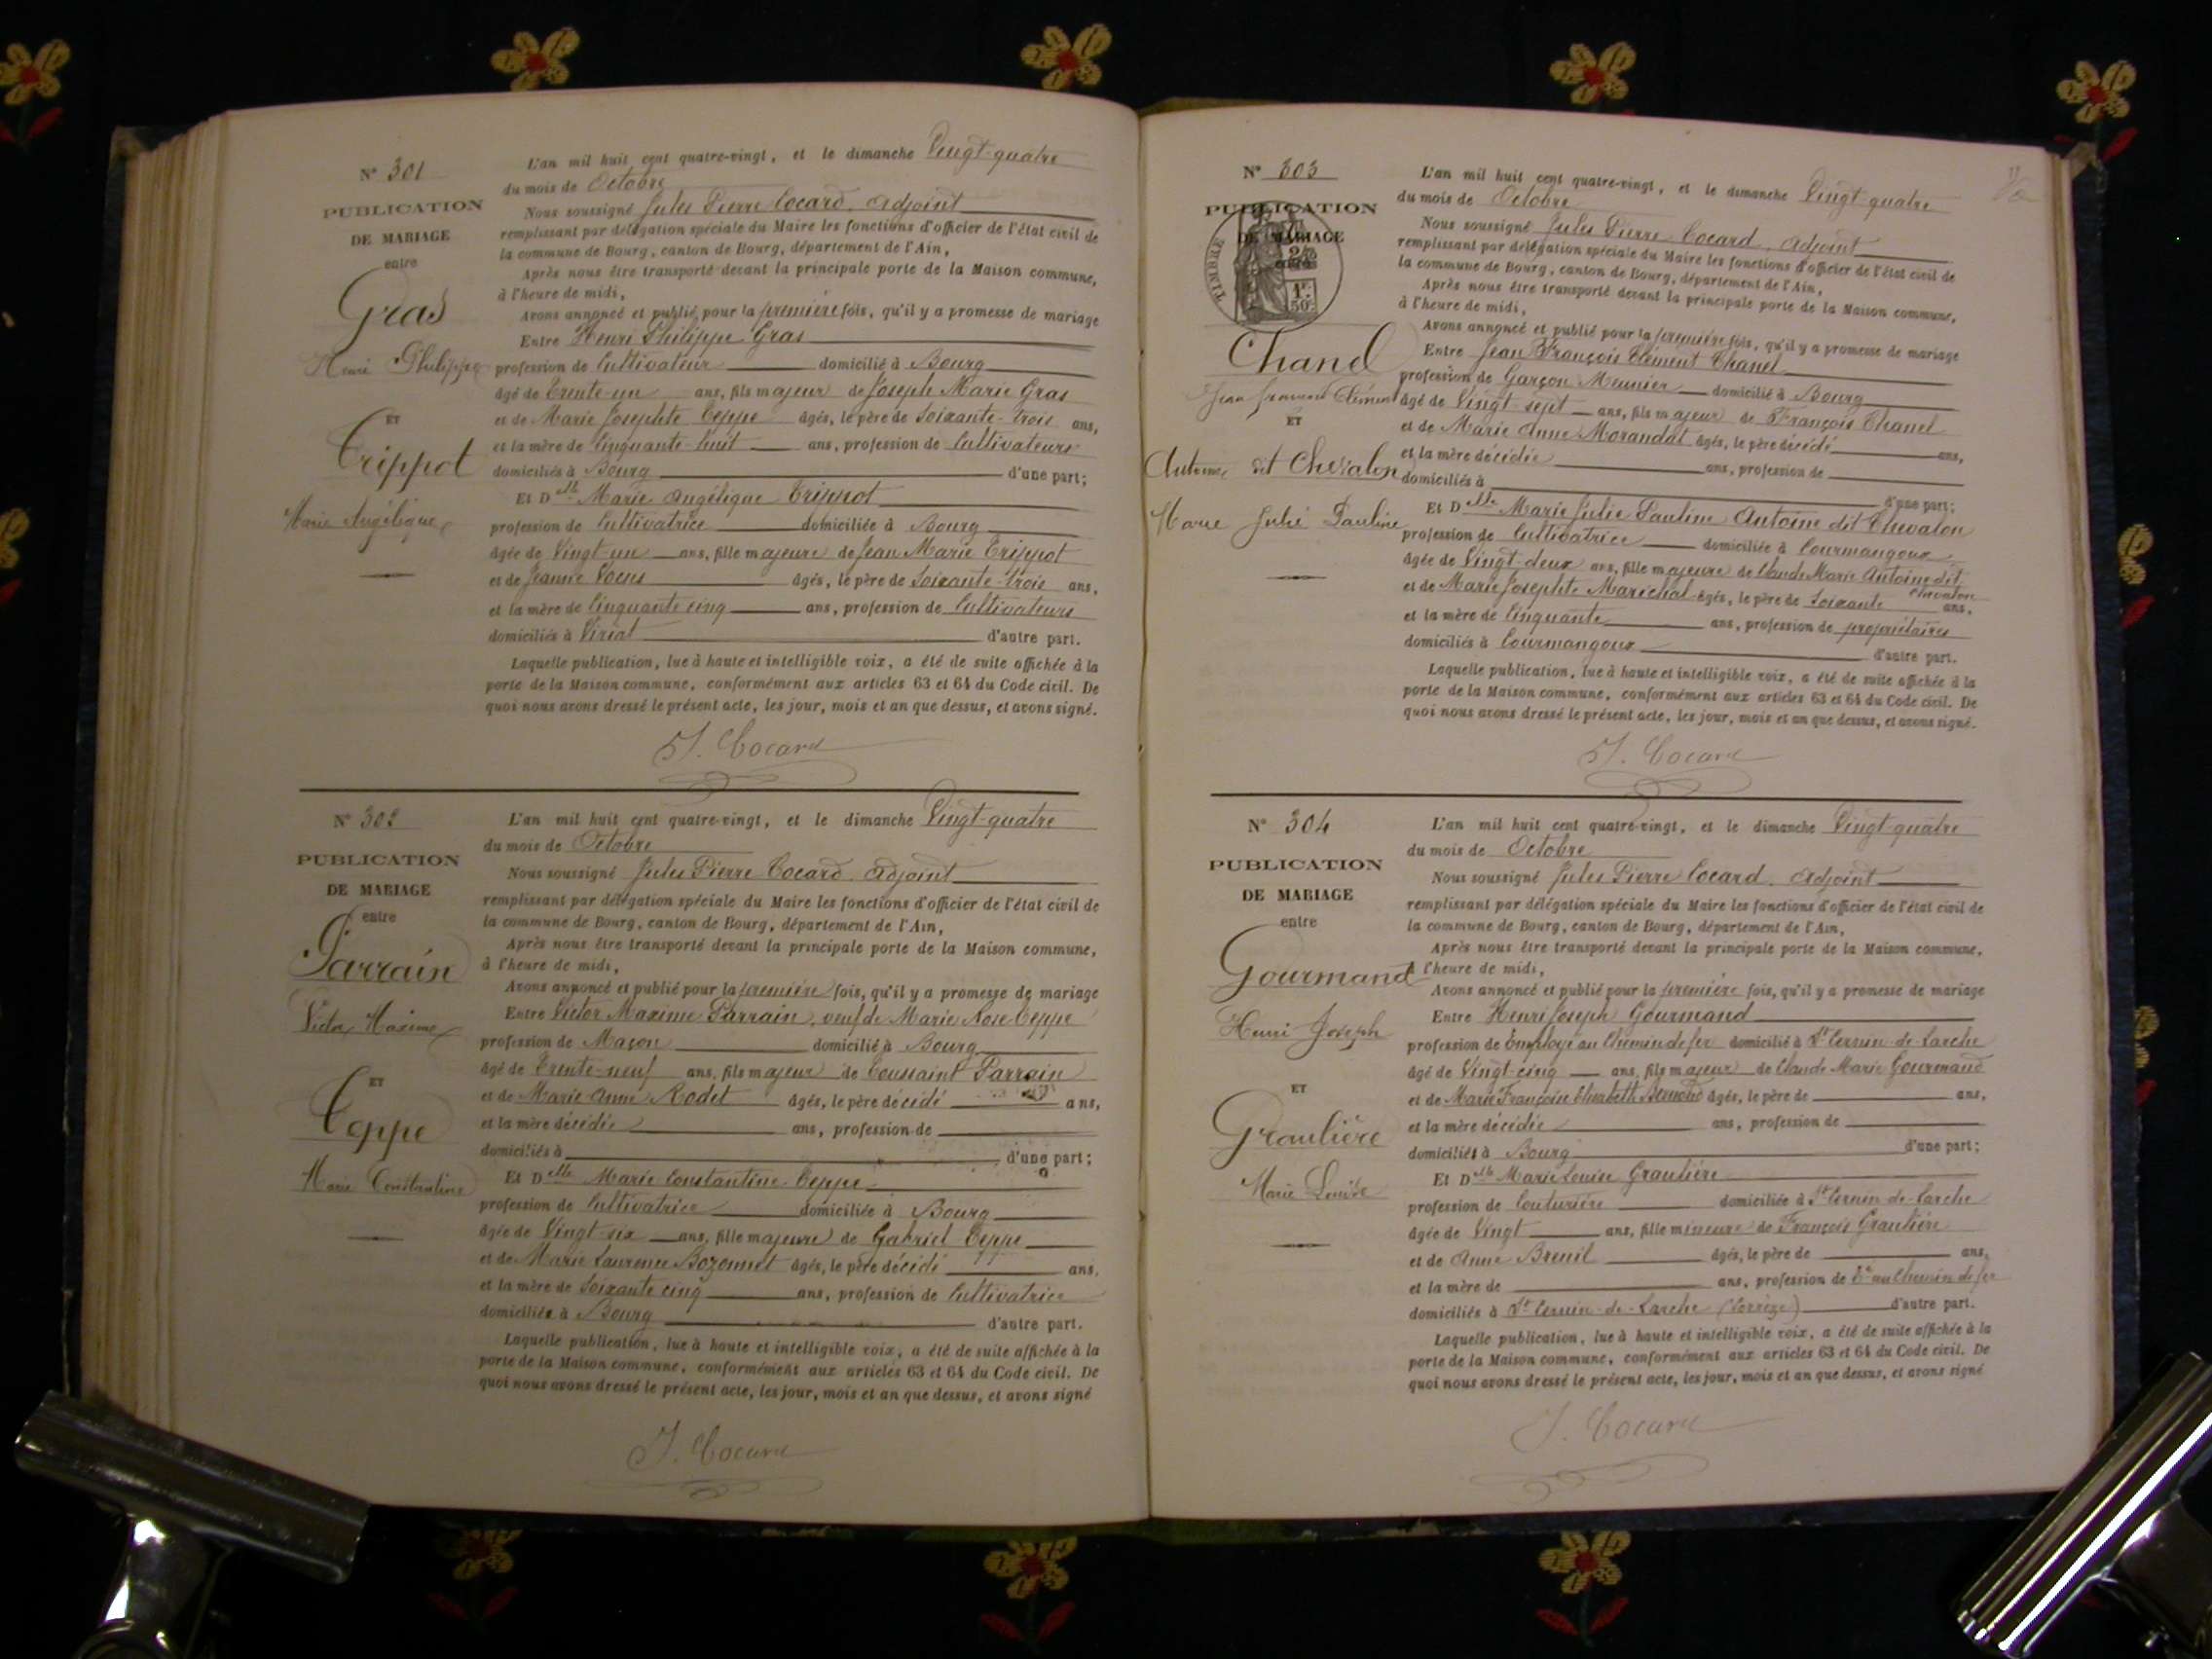 N° 301
PUBLICATION
DE MARIAGE
entre
Gras
Henri Philippe
ET
Trippot
Marie Angélique
L'an mil huit cent quatre-vingt, et le dimanche Vingt-quatre
du mois de Octobre
Nous soussigné Jules Pierre Cocard, adjoint
remplissant par délégation spéciale du Maire les fonctions d'officier de l'état civil de
la commune de Bourg, canton de Bourg, département de l'Ain,
Après nous être transporté devant la principale porte de la Maison commune,
à l'heure de midi,
Avons annoncé et publié pour la première fois, qu'il y a promesse de mariage
Entre Henri Philippe Gras
profession de Cultivateur domicilié à Bourg
âgé de Trente-un ans, fils majeur de Joseph Marie Gras
et de Marie Josephte Ceppe âgés, le père de Soixante-trois ans,
et la mère de Cinquante-huit ans, profession de Cultivateurs
domiciliés à Bourg d'une part;
Et Delle Marie Angélique Trippot
profession de Cultivatrice domiciliée à Bourg
âgée de Vingt-un ans, fille majeure de Jean Marie Trippot
et de Jeanne âgés, le père de Soixante-trois ans,
et la mère de Cinquante cinq ans, profession de Cultivateurs
domiciliés à Viriat d'autre part.
Laquelle publication, lue à haute et intelligible voix, a été de suite affichée à la
porte de la Maison commune, conformément aux articles 63 et 64 du Code civil. De
quoi nous avons dressé le présent acte, les jour, mois et an que dessus, et avons signé.
J. Cocard
N° 302
PUBLICATION
DE MARIAGE
entre
Parrain
Victor Maxime
ET
Ceppe
Marie Constantine
L'an mil huit cent quatre-vingt, et le dimanche Vingt-quatre
du mois de Octobre
Nous soussigné Jules Pierre Cocard, adjoint
remplissant par délégation spéciale du Maire les fonctions d'officier de l'état civil de
la commune de Bourg, canton de Bourg, département de l'Ain,
Après nous être transporté devant la principale porte de la Maison commune,
à l'heure de midi,
Avons annoncé et publié pour la première fois, qu'il y a promesse de mariage
Entre Victor Maxime Parrain, veuf de Marie Rose Ceppe
profession de Maçon domicilié à Bourg
âgé de Trente-neuf ans, fils majeur de Toussaint Parrain
et de Marie Anne Rodet âgés, le père décédé ans,
et la mère décédée ans, profession de
domiciliés à d'une part;
Et Delle Marie Constantine Ceppe
profession de Cultivatrice domiciliée à Bourg
âgée de Vingt-six ans, fille majeure de Gabriel Ceppe
et de Marie Laurence Bozonnet âgés, le père décédé ans,
et la mère de Soixante cinq ans, profession de Cultivatrice
domiciliés à Bourg d'autre part.
Laquelle publication, lue à haute et intelligible voix, a été de suite affichée à la
porte de la Maison commune, conformément aux articles 63 et 64 du Code civil. De
quoi nous avons dressé le présent acte, les jour, mois et an que dessus, et avons signé
J. Cocard
N° 303
PUBLICATION
DE MARIAGE
TIMBRE
1F
50c
Chanel
Jean François Clément
ET
Antoine dit Chevalon
Marie Julie Pauline
L'an mil huit cent quatre-vingt, et le dimanche Vingt quatre
du mois de Octobre
Nous soussigné Jules Pierre Cocard, adjoint
remplissant par délégation spéciale du Maire les fonctions d'officier de l'état civil de
la commune de Bourg, canton de Bourg, département de l'Ain,
Après nous être transporté devant la principale porte de la Maison commune,
à l'heure de midi,
Avons annoncé et publié pour la première fois, qu'il y a promesse de mariage
Entre Jean François Clément Chanel
profession de Garçon Meunier domicilié à Bourg
âgé de Vingt-sept ans, fils majeur de François Chanel
et de Marie Anne Morandat âgés, le père décédé ans,
et la mère décédée ans, profession de
domiciliés à d'une part;
Et Delle Marie Julie Pauline Antoine dit Chevalon
profession de Cultivatrice domiciliée à Courmangoux
âgée de Vingt-deux ans, fille majeure de Claude Marie Antoine dit Chevalon
et de Marie Josephte Maréchal âgés, le père de Soixante ans,
et la mère de Cinquante ans, profession de propriétaires
domiciliés à Courmangoux d'autre part.
Laquelle publication, lue à haute et intelligible voix, a été de suite affichée à la
porte de la Maison commune, conformément aux articles 63 et 64 du Code civil. De
quoi nous avons dressé le présent acte, les jour, mois et an que dessus, et avons signé.
J. Cocard
N° 304
PUBLICATION
DE MARIAGE
entre
Gourmand
Henri Joseph
ET
Graulière
Marie Louise
L'an mil huit cent quatre-vingt, et le dimanche Vingt-quatre
du mois de Octobre
Nous soussigné Jules Pierre Cocard, adjoint
remplissant par délégation spéciale du Maire les fonctions d'officier de l'état civil de
la commune de Bourg, canton de Bourg, département de l'Ain,
Après nous être transporté devant la principale porte de la Maison commune,
à l'heure de midi,
Avons annoncé et publié pour la première fois, qu'il y a promesse de mariage
Entre Henri Joseph Gourmand
profession de Employé au Chemin de fer domicilié à St Cernin-de-Larche
âgé de Vingt-cinq ans, fils majeur de Claude Marie Gourmand
et de Marie Françoise Elisabeth âgés, le père de ans,
et la mère décédée ans, profession de
domiciliés à Bourg d'une part;
Et Delle Marie Louise Graulière
profession de Couturière domiciliée à St Cernin-de-Larche
âgée de Vingt ans, fille mineure de François Graulière
et de Anne Breuil âgés, le père de ans,
et la mère de ans, profession de Eé au Chemin de fer
domiciliés à St Cernin-de-Larche (Corrèze) d'autre part.
Laquelle publication, lue à haute et intelligible voix, a été de suite affichée à la
porte de la Maison commune, conformément aux articles 63 et 64 du Code civil. De
quoi nous avons dressé le présent acte, les jour, mois et an que dessus, et avons signé
J. Cocard